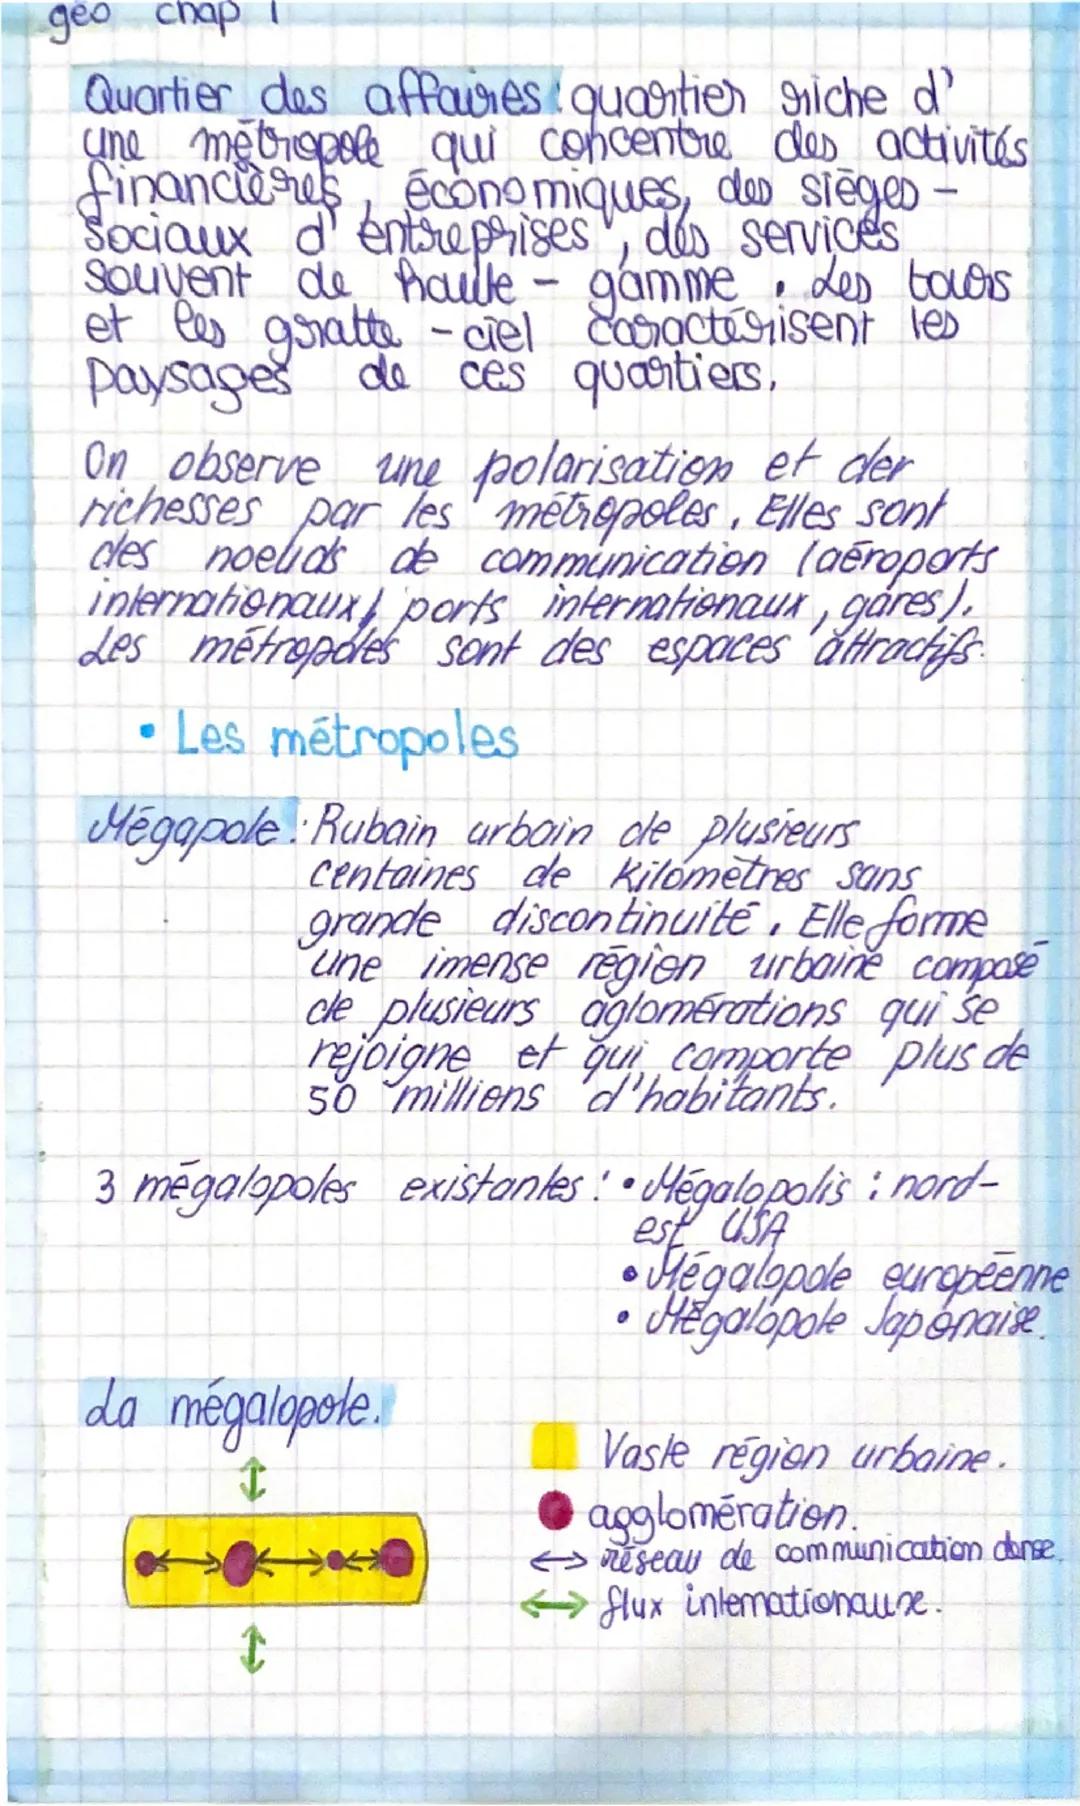 géo chap 1
Quartier des affaires : quartier riche d'
une métropole qui concentre des activités
financières, économiques, des sièges -
sociaux d'entreprises, des services
souvent de haute - gamme. Les tours
et les gratte - ciel caractérisent les
paysages de ces quartiers.
On observe une polarisation et der
richesses par les métropoles. Elles sont
des noeuds de communication (aéroports
internationaux), ports internationaux, gares).
Les métropoles sont des espaces attractifs.
• Les métropoles
Mégapole : Rubain urbain de plusieurs
centaines de kilomètres sans
grande discontinuité. Elle forme
une imense région urbaine composé
de plusieurs aglomérations qui se
rejoigne et qui comporte plus de
50 millions d'habitants.
3 mégalopoles existantes : • Mégalopolis : nord-
est USA
• Mégalopole européenne
• Mégalopole Japonaise.
La mégalopole.
Vaste région urbaine.
agglomération.
↔ réseau de communication dense.
↔ flux internationaux.